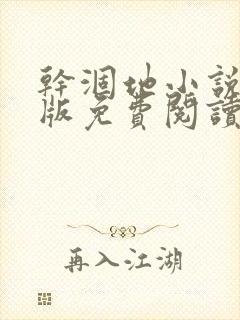 幹涸地小說
版免費閱讀
再入江湖